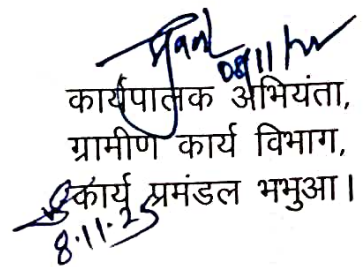 08/11/25
कार्यपालक अभियंता,
ग्रामीण कार्य विभाग,
कार्य प्रमंडल भभुआ।
8.11.25